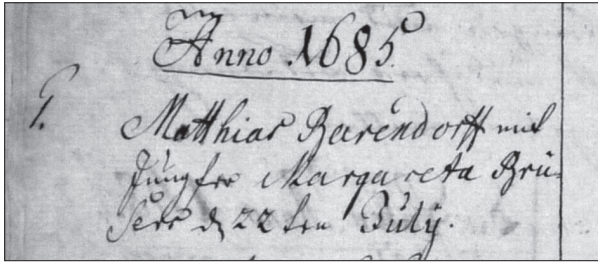 Anno 1685.
1. Matthias Barendorff mit
Jungfer Margareta Brü-
sers d 22 ten July.